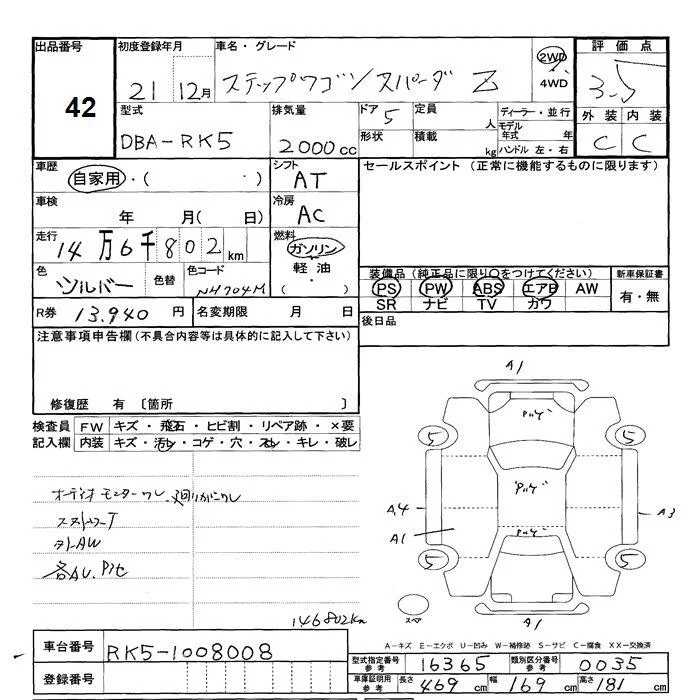 出品番号 初度登録年月 車名・グレード 評価点
42 21 12月 ステップワゴンスパーダ Z 2WD 4WD 3.5
型式 排気量 ドア 5 定員 人 ディーラー・並行 外装 内装
DBA-RK5 2000cc 形状 積載 kg モデル年式 年 ハンドル 左・右 C C
車歴 シフト セールスポイント (正常に機能するものに限ります)
自家用・( ) AT
車検 冷房
年 月( 日) AC
走行 燃料
14万6千802km ガソリン
色 色替 色コード 軽油・( ) 装備品 (純正品に限り○をつけてください) 新車保証書
シルバー NH704M PS PW ABS エアB AW 有・無
SR ナビ TV カワ
R券 13,940円 名変期限 月 日 後日品
注意事項申告欄(不具合内容等は具体的に記入して下さい)
修復歴 有 〔箇所 〕
検査員 FW キズ・飛石・ヒビ割・リペア跡・×要
記入欄 内装 キズ・汚レ・コゲ・穴・スレ・キレ・破レ
A1
5 5
A4 A3
A1
5 5
スペア A1
オーディオモニターワレ
外AW
146802km
A-キズ E-エクボ U-凹み W-補修跡 S-サビ C-腐食 XX-交換済
車台番号 RK5-1008008
型式指定番号 参考 16365 類別区分番号 参考 0035
登録番号 車庫証明用 参考 長さ 469cm 幅 169cm 高さ 181cm